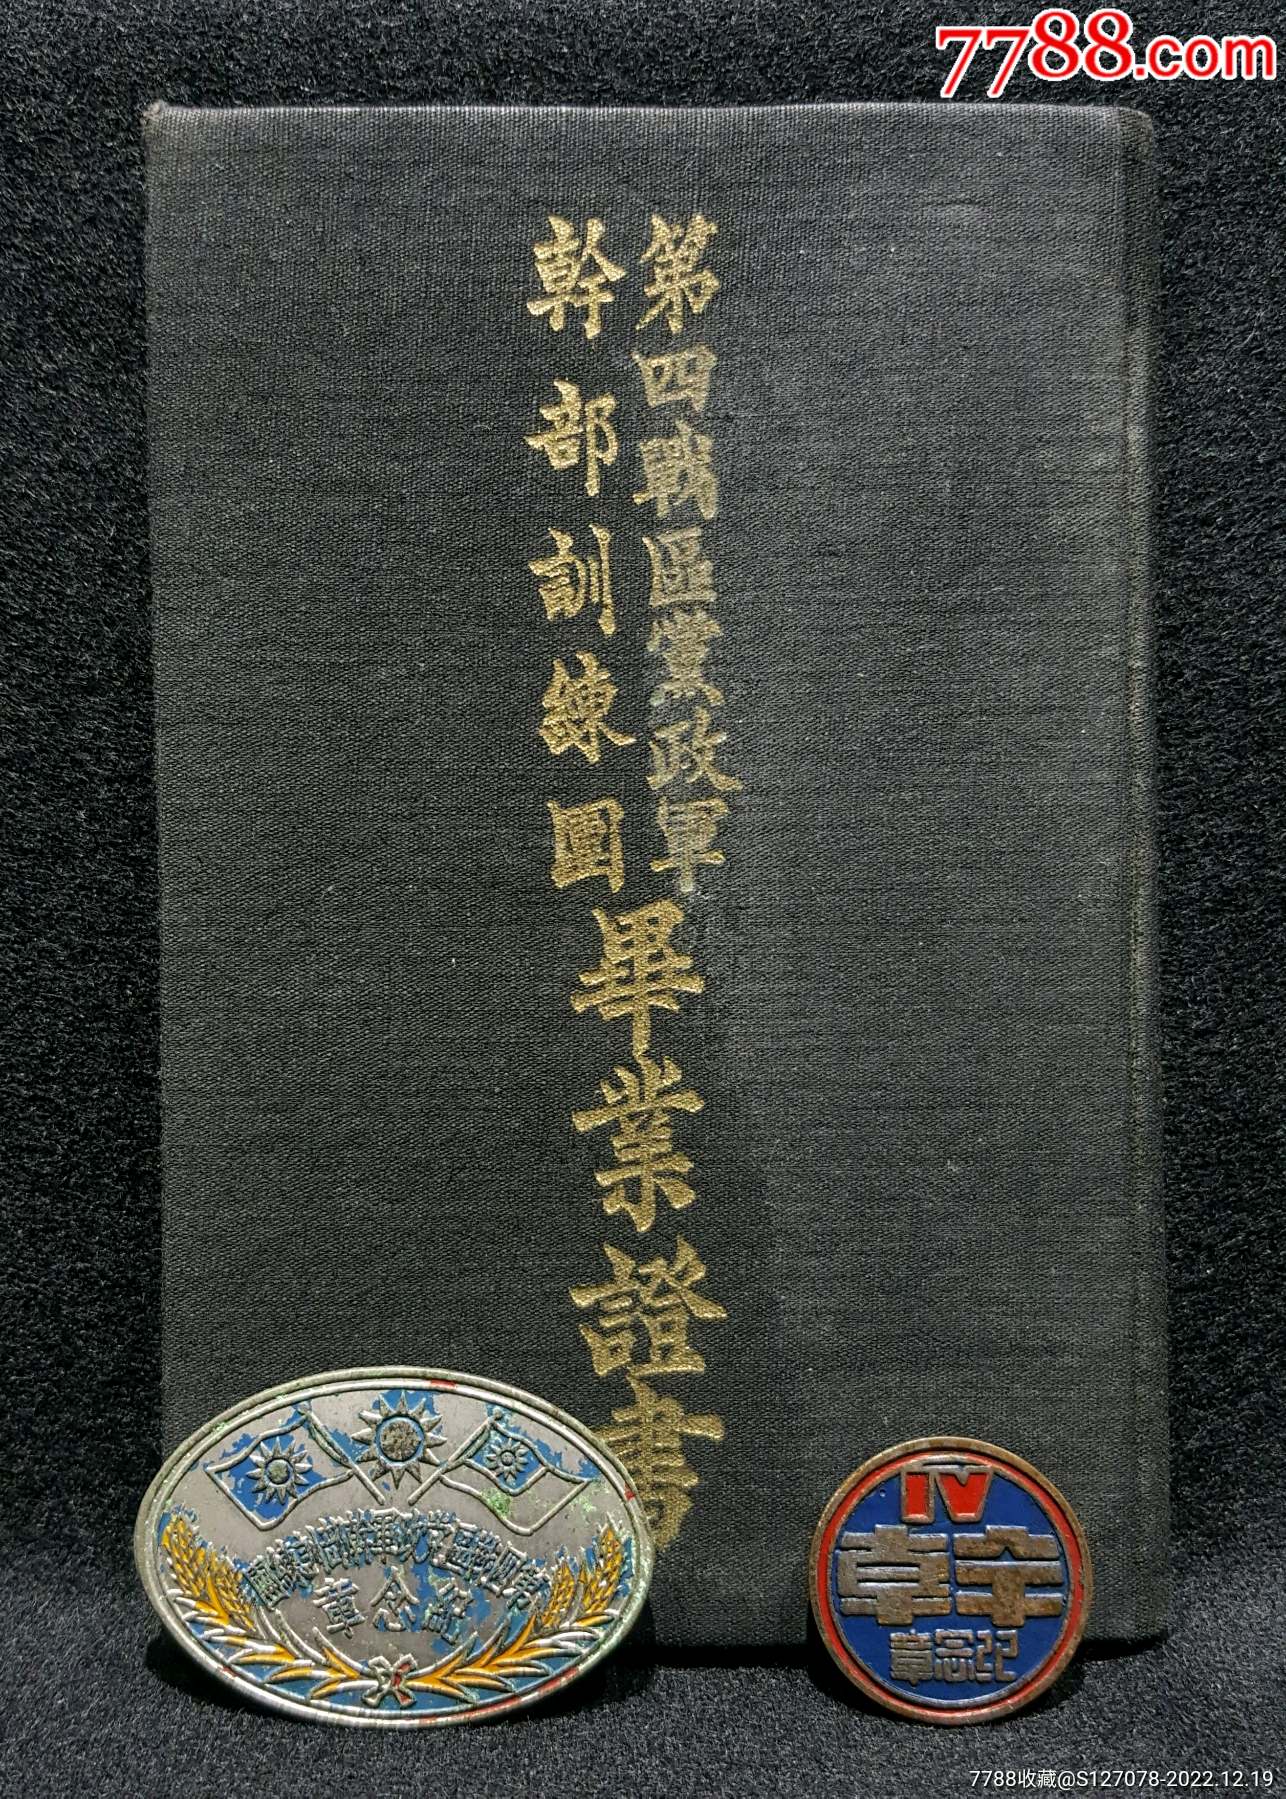 7788.com
第四戰區黨政軍
幹部訓練團
畢業證書
第四戰區党政軍幹部訓練團
紀念章
IV
紀念章
7788收藏@S127078-2022.12.19